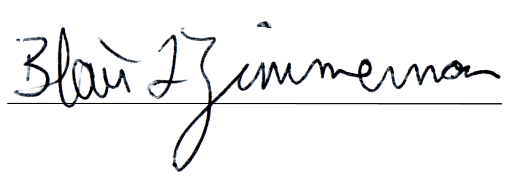 Blair Zimmerman